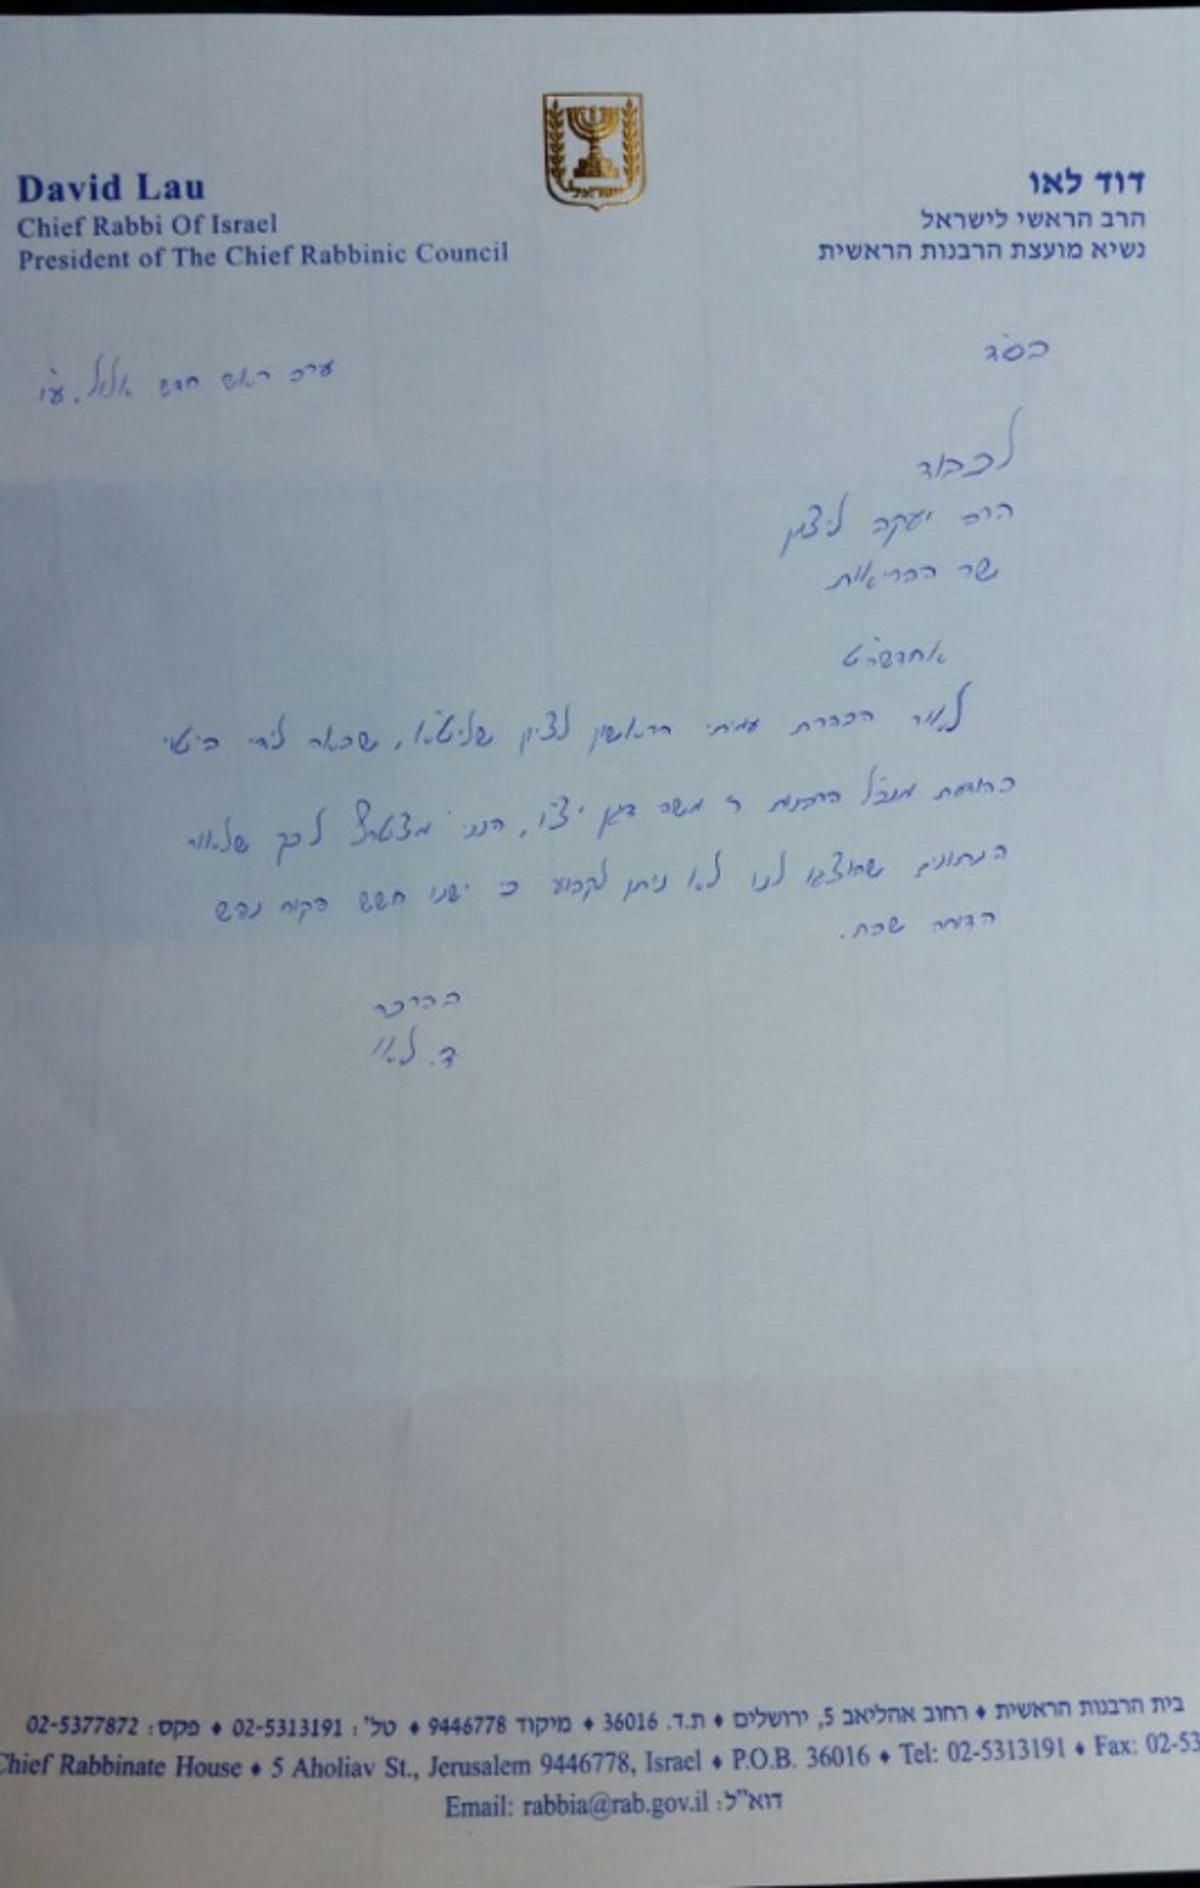 ישראל
דוד לאו
הרב הראשי לישראל
נשיא מועצת הרבנות הראשית
David Lau
Chief Rabbi Of Israel
President of The Chief Rabbinic Council
בס"ד
ערב ראש חדש אלול, ע"ו
לכבוד
הרב יעקב ליצמן
שר הבריאות
אחדשה"ט
לאור הבהרת עמיתי הראשון לציון שליט"א, שבאה לידי ביטוי
בהודעת מנכ"ל הרבנות ר' משה דגן יצ"ו, הנני מצטרף לכך שלאור
הנתונים שהוצגו לנו לא ניתן לקבוע כי ישנו חשש פקוח נפש
הדוחה שבת.
בברכה
ד. לאו
בית הרבנות הראשית ♦ רחוב אהליאב 5, ירושלים ♦ ת.ד. 36016 ♦ מיקוד 9446778 ♦ טל': 02-5313191 ♦ פקס: 02-5377872
Chief Rabbinate House ♦ 5 Aholiav St., Jerusalem 9446778, Israel ♦ P.O.B. 36016 ♦ Tel: 02-5313191 ♦ Fax: 02-53
Email: rabbia@rab.gov.il :דוא"ל